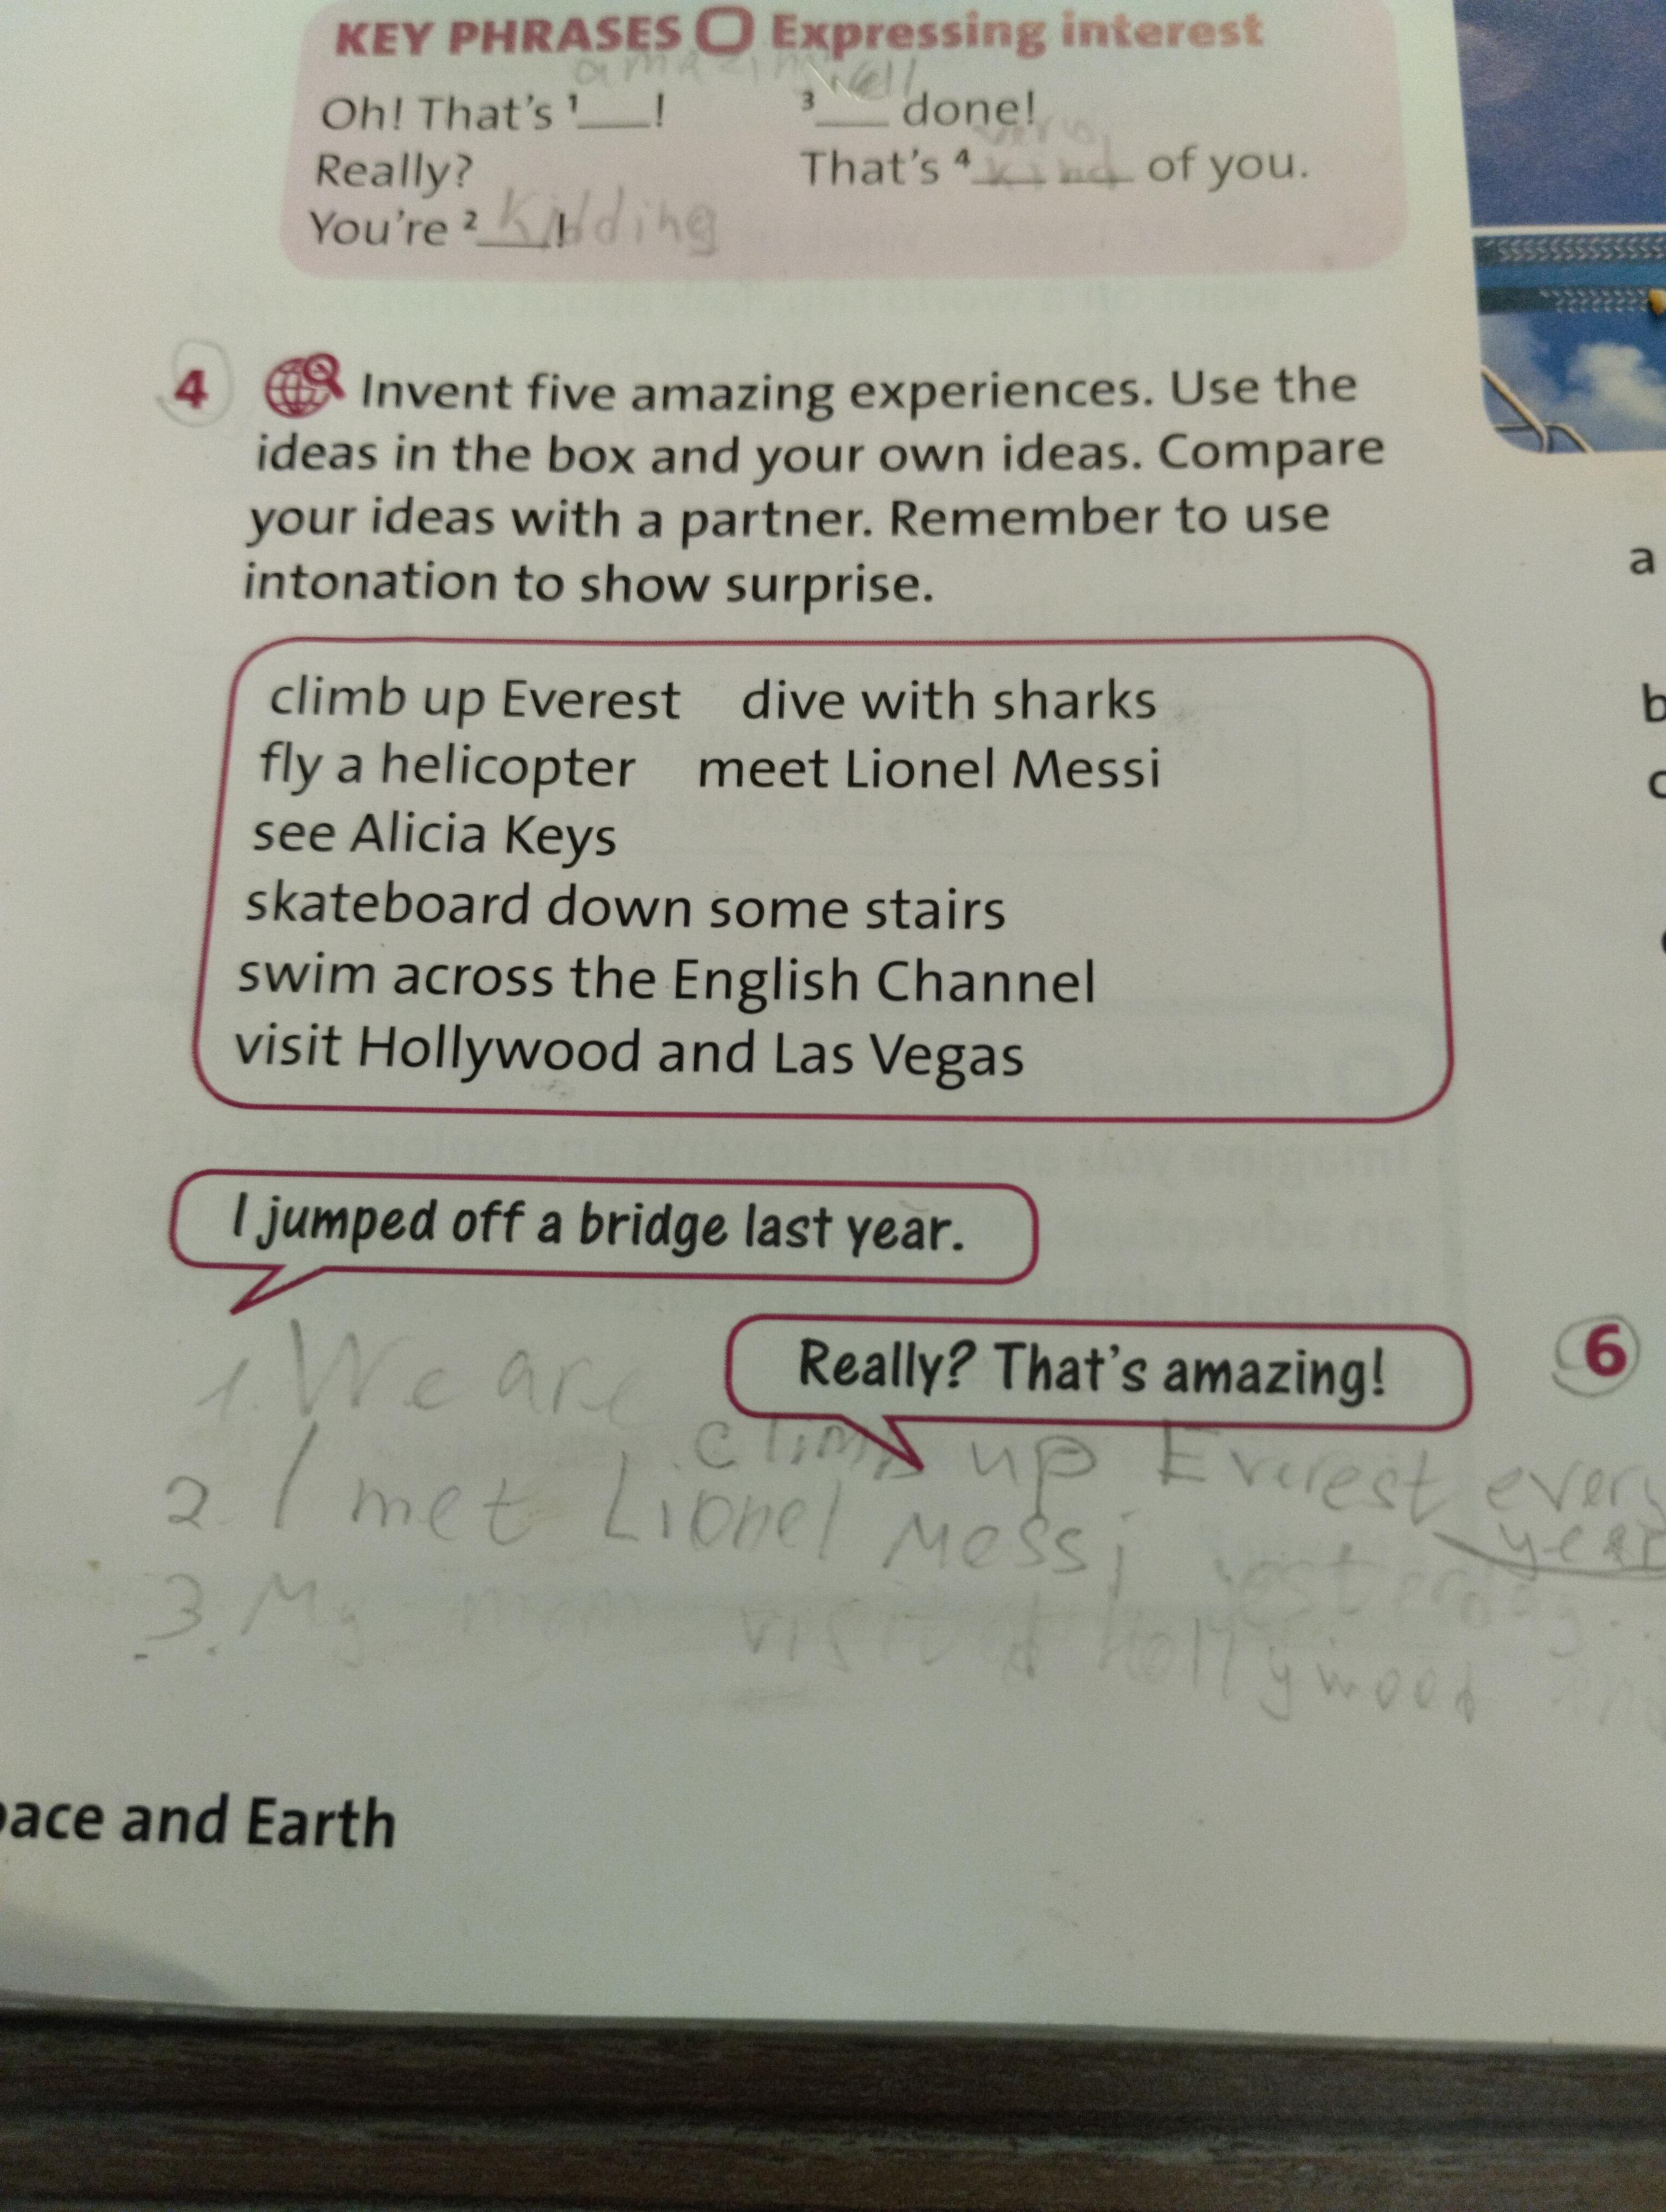 KEY PHRASES Expressing interest
amazing well
Oh! That's ¹___! ³___ done!
very
Really? That's ⁴ kind of you.
You're ² Kidding!
4 Invent five amazing experiences. Use the
ideas in the box and your own ideas. Compare
your ideas with a partner. Remember to use
intonation to show surprise.
a
climb up Everest dive with sharks
b
fly a helicopter meet Lionel Messi
c
see Alicia Keys
skateboard down some stairs
swim across the English Channel
visit Hollywood and Las Vegas
I jumped off a bridge last year.
Really? That's amazing!
6
1. We are
climb up Everest every
year
2. I met Lionel Messi yesterday.
3. My mom visited Hollywood and
pace and Earth